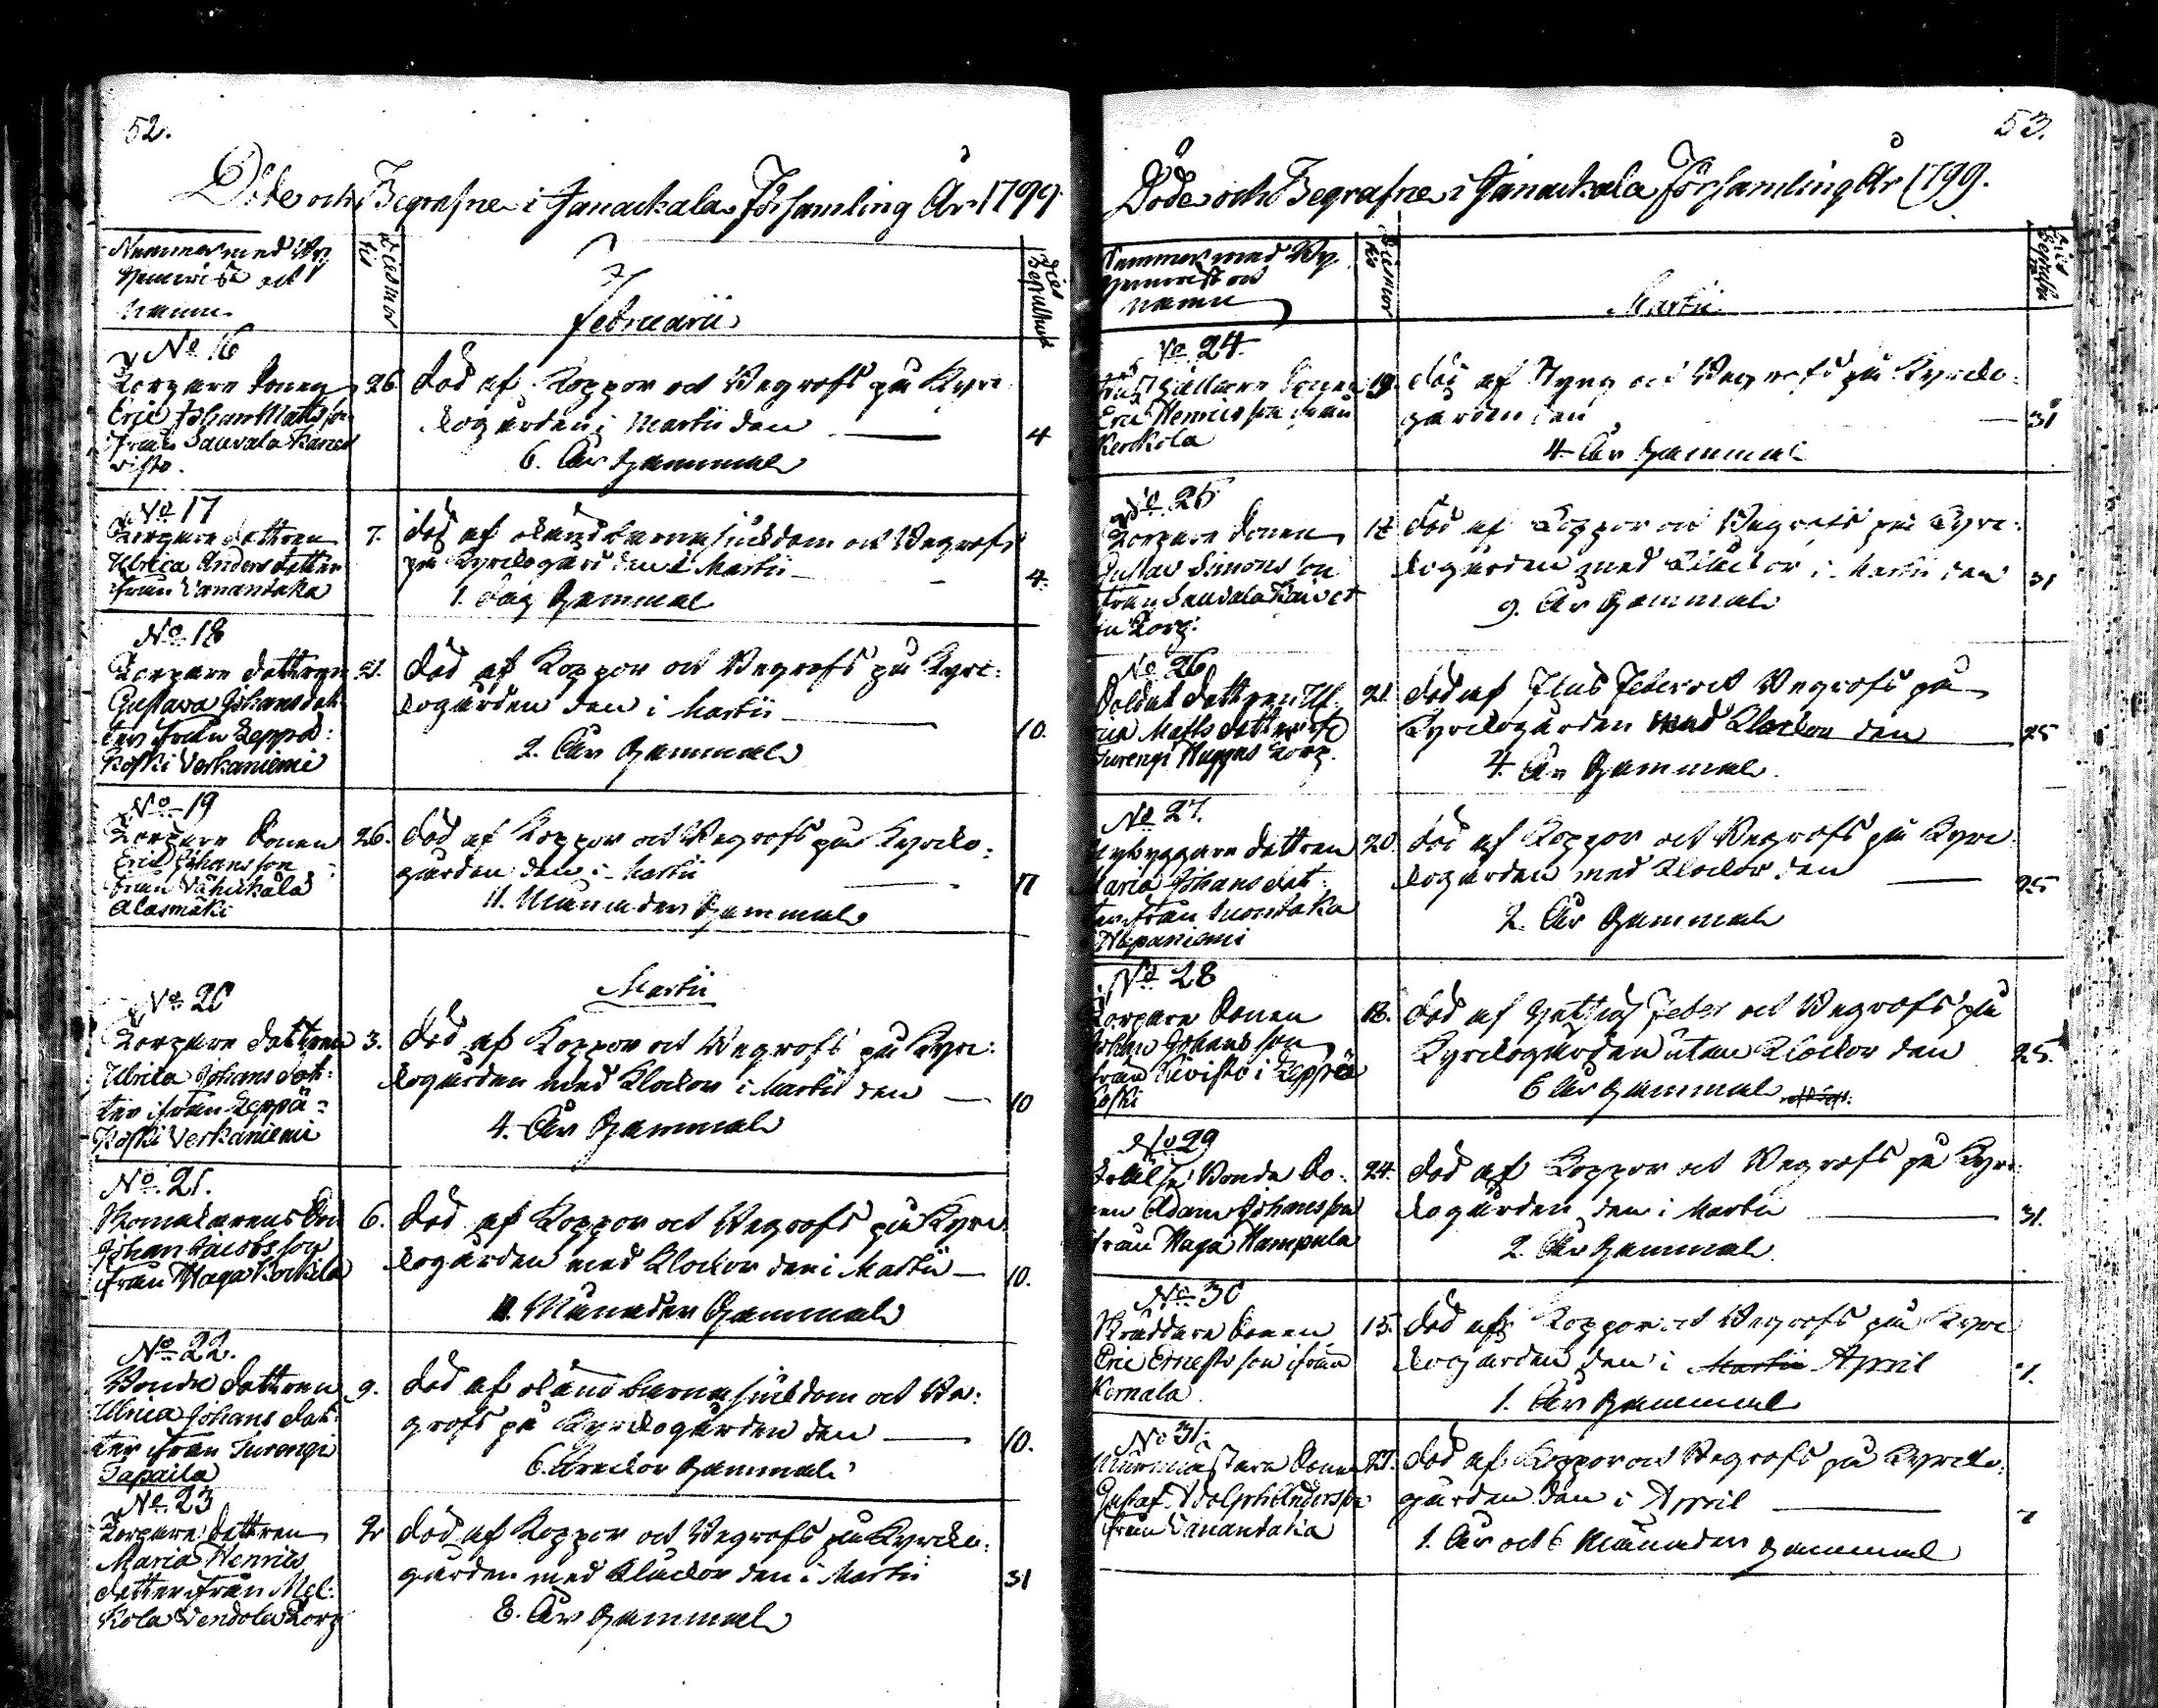 52.
Döde och Begrafne i Janackala Församling År 1799.
Nummer med By
Hemvist och
Namn
Dies mortis
Februarii
Dies Sepulturæ
No 16
Torpare Sonen
Eric Johan Matts son
ifrån Sauvala Kanes
visto.
26
död af Koppor och Begrofs på Kyrc
kogården i Martii den
4
6. År Gammal
No 17
Torpare dottren
Ulrica Anders dotter
ifrån Vanantaka
7.
död af okänd barnasjukdom och Begrofs
på Kyrckogården i Martii
4.
1. dag Gammal
No 18
Torpare dottren
Gustava Johans dot-
ter ifrån Leppä:
Koski Verkaniemi
21.
död af Koppor och Begrofs på Kyrc:
kogården den i Martii
10.
2. År Gammal
No 19
Torpare Sonen
Eric Johans son
ifrån Vähikkälä
Alasmäki
26.
död af Koppor och Begrofs på Kyrcko:
gården den i Martii
17
11. Månader Gammal
Martii
No 20
Torpare dottren
Ulrica Johans dot:
ter ifrån Leppä:
Koski Verkaniemi
3.
död af Koppor och Begrofs på Kyrc:
kogården med Klockor i Martii den
10
4. År Gammal
No 21.
Skomakarens Son
Johan Jacobs son
ifrån Haga Kockila
6.
död af Koppor och Begrofs på Kyrc
kogården med Klockor den i Martii
10.
11. Månader Gammal
No 22.
Bonde dottren
Ulrica Johans dot:
ter ifrån Turengi
Tapaila
9.
död af okänd barnasjukdom och Be:
grofs på Kyrckogården den
10.
6. Veckor Gammal
No 23
Torpare dottren
Maria Henrics
dotter ifrån Mel:
Kola Vendola Torp
2
död af Koppor och Begrofs på Kyrcko:
gården med Klockor den i Martii
31
8. År Gammal
53.
Döde och Begrafne i Janackala Församling År 1799.
Nummer med By
Hemvist och
Namn
Dies mortis
Martii
No 24.
Sonen
Eric Henrics son ifrån
Kerkola
19.
död af Styng och Begrofs på Kyrcko:
gården den
31
4 År Gammal
No 25
Torpare Sonen
Gustav Simons son
ifrån Sauvala
Torp.
17
död af Koppor och Begrofs på Kyrc:
kogården med Klockor i Martii den
31
9. År Gammal
No 26
Soldat dottren Ul-
rica Matts dotter ifr.
Turengi Huggas Torp.
21.
död af Feber och Begrofs på
Kyrckogården med Klockor den
25
4. År Gammal.
No 27.
Nybyggare dottren
Maria Johans dot
ter ifrån Suontaka
Hapaniemi
20.
död af Koppor och Begrofs på Kyrc
kogården med Klockor den
25
2. År Gammal
No 28
Torpare Sonen
Johan Johans son
ifrån Kuvisto i Leppä
Koski
18.
död af Hettsig Feber och Begrofs på
Kyrckogården utan Klockor den
25.
6 År Gammal
No 29
Frälse Bonde So:
nen Adam Johansson
ifrån Haga Hampula
24.
död af Koppor och Begrofs på Kyrc:
kogården den i Martii
31.
2. År Gammal.
No 30
Skräddare Sonen
Eric Ernests son ifrån
Kernala
15.
död af Koppor och Begrofs på Kyrc
kogården den i Martii April
7.
1. År Gammal
No 31.
Murmästare Sonen
Gustaf Adolph Anders son
ifrån Vanantaka
27.
död af Koppor och Begrofs på Kyrcko:
gården den i April
7
1. År och 6 Månader Gammal